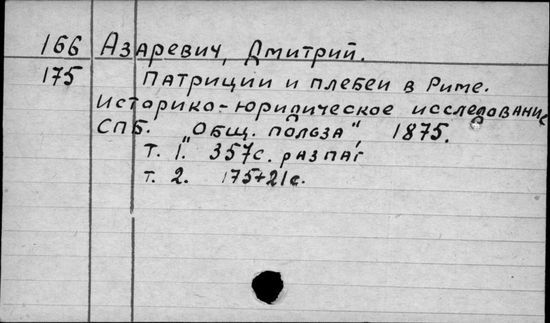 166 Азаревич, Дмитрий.
175 Патриции и плебеи в Риме.
Историко-юридическое исследование
СПБ. "Общ. польза", 1875.
т. 1. 357с. разпаг
т. 2. 175+21с.